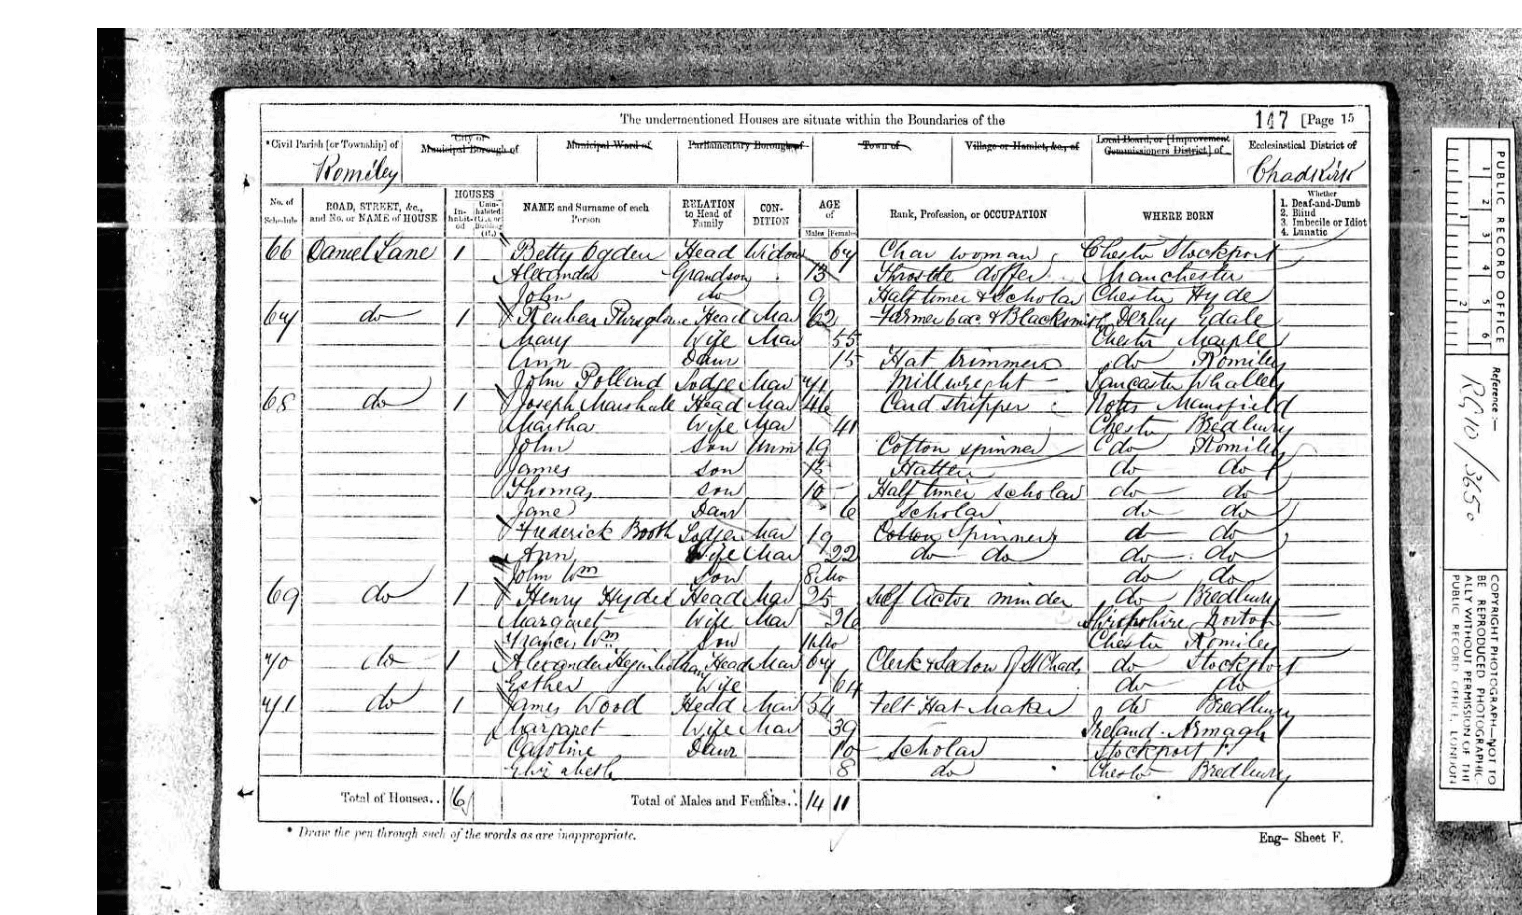 The undermentioned Houses are situate within the Boundaries of the
147 [Page 15
*Civil Parish [or Township] of
City or Municipal Borough of
Municipal Ward of
Parliamentary Borough of
Town of
Village or Hamlet, &c., of
Local Board, or [Improvement Commissioners District] of
Ecclesiastical District of
Romiley
Chadkirk
No. of Schedule
ROAD, STREET, &c., and No. or NAME of HOUSE
HOUSES
In-habit-ed
Unin-habited (U.), or Building (B.)
NAME and Surname of each Person
RELATION to Head of Family
CON-DITION
AGE of
Males Females
Rank, Profession, or OCCUPATION
WHERE BORN
Whether
1. Deaf-and-Dumb
2. Blind
3. Imbecile or Idiot
4. Lunatic
66 Daniel Lane 1 Betty Ogden Head Widow 67 Char woman Chester Stockport
Alexander Grandson 13 Throstle doffer Manchester
John do 9 Half timer & Scholar Chester Hyde
67 do 1 Reuben Head Mar 62 Farmer & Blacksmith Derby Edale
Mary Wife Mar 55 Chester Marple
Ann Daur 15 Hat trimmer do Romiley
John Pollard Lodger Mar 71 Millwright Lancaster Whalley
68 do 1 Joseph Marshall Head Mar 46 Card stripper Notts Mansfield
Martha Wife Mar 41 Chester Bredbury
John Son Unm 19 Cotton spinner do Romiley
James Son 13 Hatter do do
Thomas Son 10 Half timer scholar do do
Jane Daur 6 Scholar do do
Frederick Booth Lodger Mar 19 Cotton Spinner do do
Ann Wife Mar 22 do do do do
John Wm Son 8 Mo do do
69 do 1 Henry Hydes Head Mar 25 Self Actor minder do Bredbury
Margaret Wife Mar 26 Shropshire Norton
Francis Wm Son Mo Chester Romiley
70 do 1 Alexander Higinbotham Head Mar 67 Clerk & Saxton of St Chads do Stockport
Esther Wife 64 do do
71 do 1 James Wood Head Mar 54 Felt Hat Maker do Bredbury
Margaret Wife Mar 39 Ireland Armagh
Caroline Daur 10 Scholar Stockport
Elizabeth 8 do Chester Bredbury
Total of Houses.. 6 Total of Males and Females.. 14 11
* Draw the pen through such of the words as are inappropriate.
Eng— Sheet F.
PUBLIC RECORD OFFICE
1 2 3 4 5 6
1 2
Reference :—
RG10/3650
COPYRIGHT PHOTOGRAPH—NOT TO
BE REPRODUCED PHOTOGRAPHIC-
ALLY WITHOUT PERMISSION OF THE
PUBLIC RECORD OFFICE, LONDON